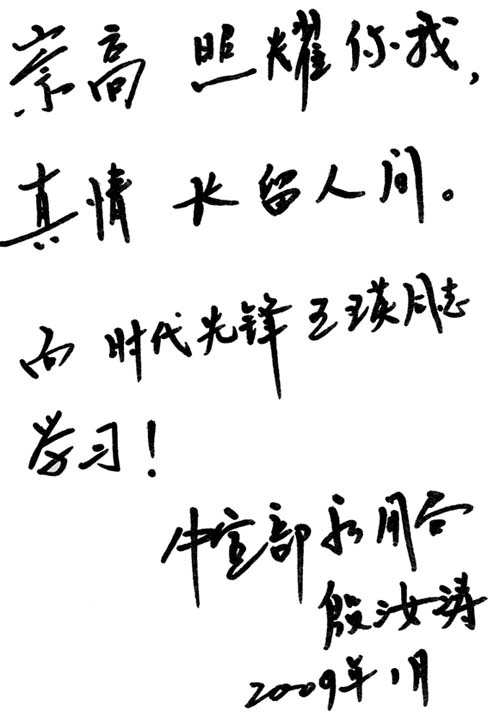 崇高 照耀你我,
真情 长留人间。
向 时代先锋王瑛同志
学习!
中宣部新闻局
殷汝涛
2009年1月